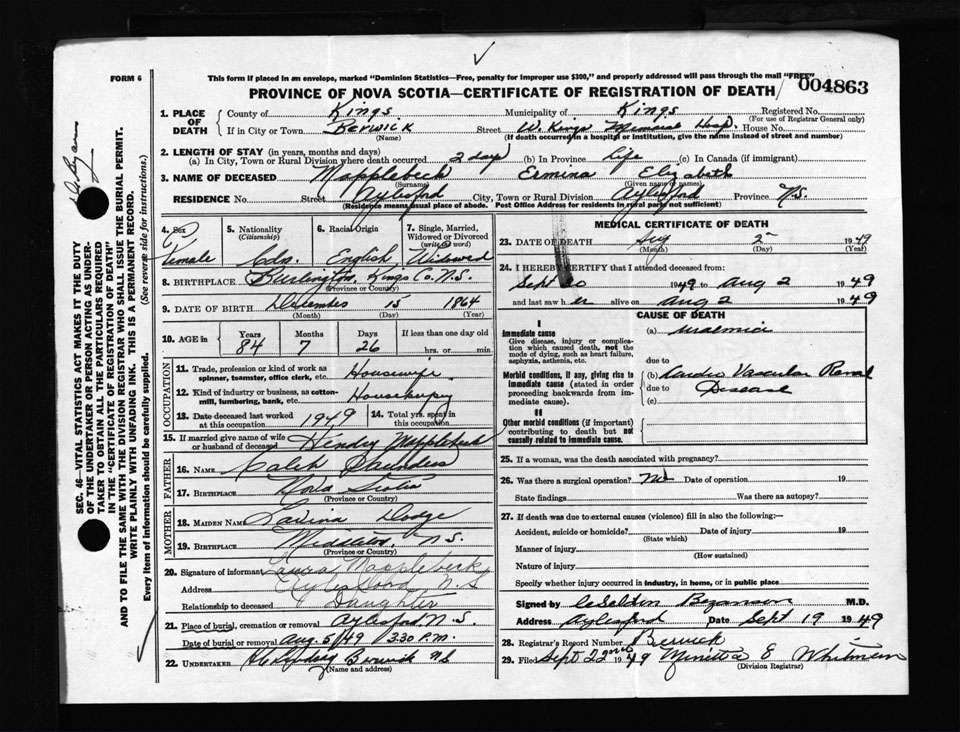 FORM 6
This form if placed in an envelope, marked "Dominion Statistics—Free, penalty for improper use $300," and properly addressed will pass through the mail "FREE"
004863
PROVINCE OF NOVA SCOTIA—CERTIFICATE OF REGISTRATION OF DEATH
1. PLACE OF DEATH
County of Kings Municipality of Kings Registered No.
(For use of Registrar General only)
If in City or Town Berwick Street W. Kings Memorial Hosp. House No.
(Name) (If death occurred in a hospital or institution, give the name instead of street and number)
2. LENGTH OF STAY (in years, months and days)
(a) In City, Town or Rural Division where death occurred 2 days (b) In Province life (c) In Canada (if immigrant)
3. NAME OF DECEASED Mapplebeck Ermina Elizabeth
(Surname) (Given name or names)
RESIDENCE No. Street Aylesford City, Town or Rural Division Aylesford Province N.S.
(Residence means usual place of abode. Post Office Address for residents in rural parts not sufficient)
4. Sex
Female
5. Nationality
(Citizenship)
Cdn.
6. Racial Origin
English
7. Single, Married, Widowed or Divorced
(write the word)
Widowed
8. BIRTHPLACE Burlington, Kings Co. N.S.
(Province or Country)
9. DATE OF BIRTH December 15 1864
(Month) (Day) (Year)
10. AGE in
Years Months Days If less than one day old
84 7 26 hrs. or min.
OCCUPATION
11. Trade, profession or kind of work as spinner, teamster, office clerk, etc. Housewife
12. Kind of industry or business, as cotton-mill, lumbering, bank, etc. Housekeeping
13. Date deceased last worked at this occupation 1949
14. Total yrs. spent in this occupation
15. If married give name of wife or husband of deceased Mapplebeck
FATHER
16. NAME Caleb Saunders
17. BIRTHPLACE Nova Scotia
(Province or Country)
MOTHER
18. MAIDEN NAME Lavina Dodge
19. BIRTHPLACE Middleton N.S.
(Province or Country)
20. Signature of informant Laura Mapplebeck
Address Aylesford N.S.
Relationship to deceased Daughter
21. Place of burial, cremation or removal Aylesford N.S.
Date of burial or removal Aug. 5/49 3.30 P.M.
22. UNDERTAKER Berwick NS
(Name and address)
MEDICAL CERTIFICATE OF DEATH
23. DATE OF DEATH Aug 2 1949
(Month) (Day) (Year)
24. I HEREBY CERTIFY that I attended deceased from:
1949 to Aug 2 1949
and last saw her alive on Aug 2 1949
CAUSE OF DEATH
I
Immediate cause
Give disease, injury or complication which caused death, not the mode of dying, such as heart failure, asphyxia, asthenia, etc.
(a) uraemia
due to
Morbid conditions, if any, giving rise to immediate cause (stated in order proceeding backwards from immediate cause).
(b) Cardio Vascular Renal
due to Disease
(c)
II
Other morbid conditions (if important) contributing to death but not causally related to immediate cause.
25. If a woman, was the death associated with pregnancy?
26. Was there a surgical operation? No Date of operation 19
State findings Was there an autopsy?
27. If death was due to external causes (violence) fill in also the following:—
Accident, suicide or homicide? Date of injury 19
(State which)
Manner of injury
(How sustained)
Nature of injury
Specify whether injury occurred in industry, in home, or in public place
Signed by Bezanson M.D.
Address Aylesford Date Sept 19 1949
28. Registrar's Record Number Berwick
29. Filed Sept 22nd 1949 E Whitman
(Division Registrar)
SEC. 46—VITAL STATISTICS ACT MAKES IT THE DUTY
OF THE UNDERTAKER OR PERSON ACTING AS UNDER-
TAKER TO OBTAIN ALL THE PARTICULARS REQUIRED
IN THE "CERTIFICATE OF REGISTRATION OF DEATH"
AND TO FILE THE SAME WITH THE DIVISION REGISTRAR WHO SHALL ISSUE THE BURIAL PERMIT.
WRITE PLAINLY WITH UNFADING INK. THIS IS A PERMANENT RECORD.
Every item of information should be carefully supplied. (See reverse side for instructions.)